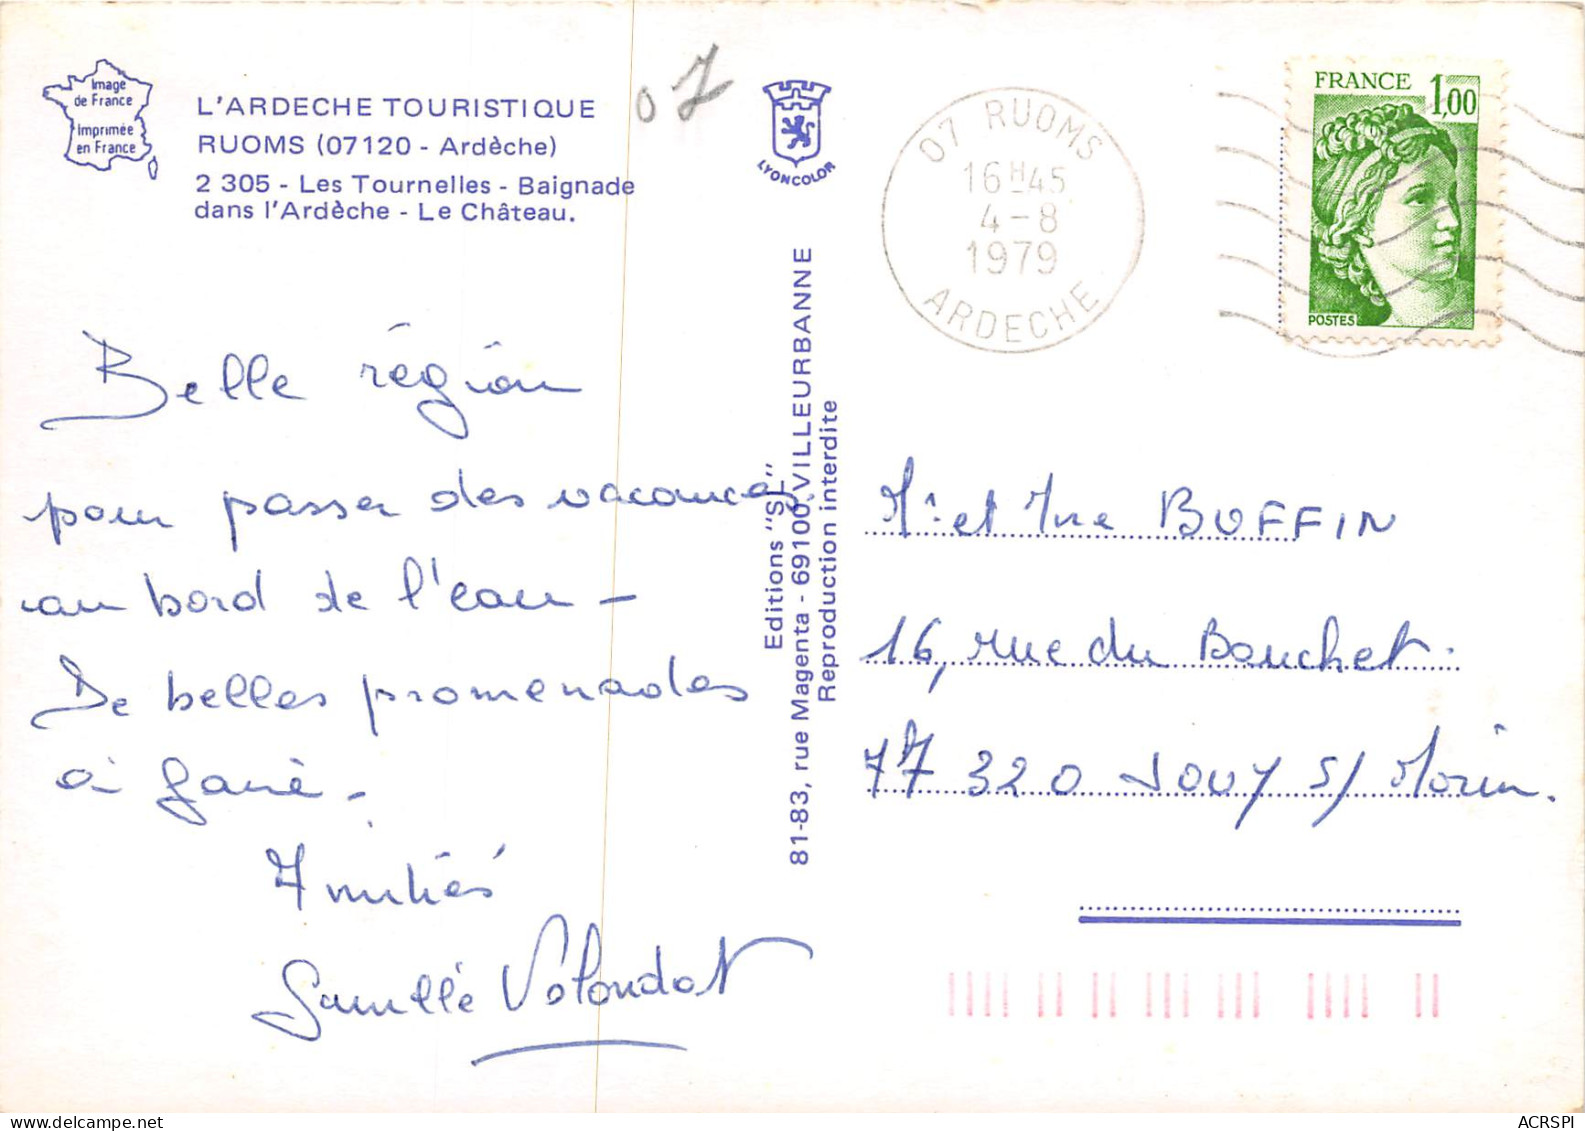 Image
de France
Imprimée
en France
L'ARDECHE TOURISTIQUE
RUOMS (07120 - Ardèche)
2 305 - Les Tournelles - Baignade
dans l'Ardèche - Le Château.
07
LYONCOLOR
07 RUOMS
16H45
4-8
1979
ARDECHE
FRANCE 1,00
POSTES
Belle région
pour passer des vacances
au bord de l'eau -
De belles promenades
à faire -
Amitiés
Famille Volondat
Editions "SL"
81-83, rue Magenta - 69100 VILLEURBANNE
Reproduction interdite
Mr et Mme BUFFIN
16, rue du Bouchet.
77 320 JOUY S/ Morin.
delcampe.net
ACRSPI